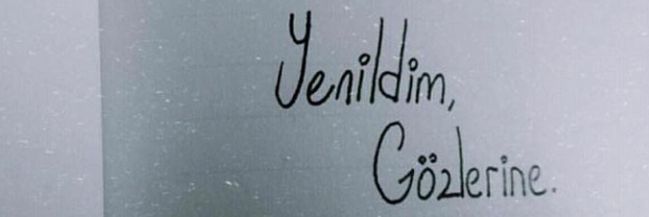 Yenildim,
Gözlerine.